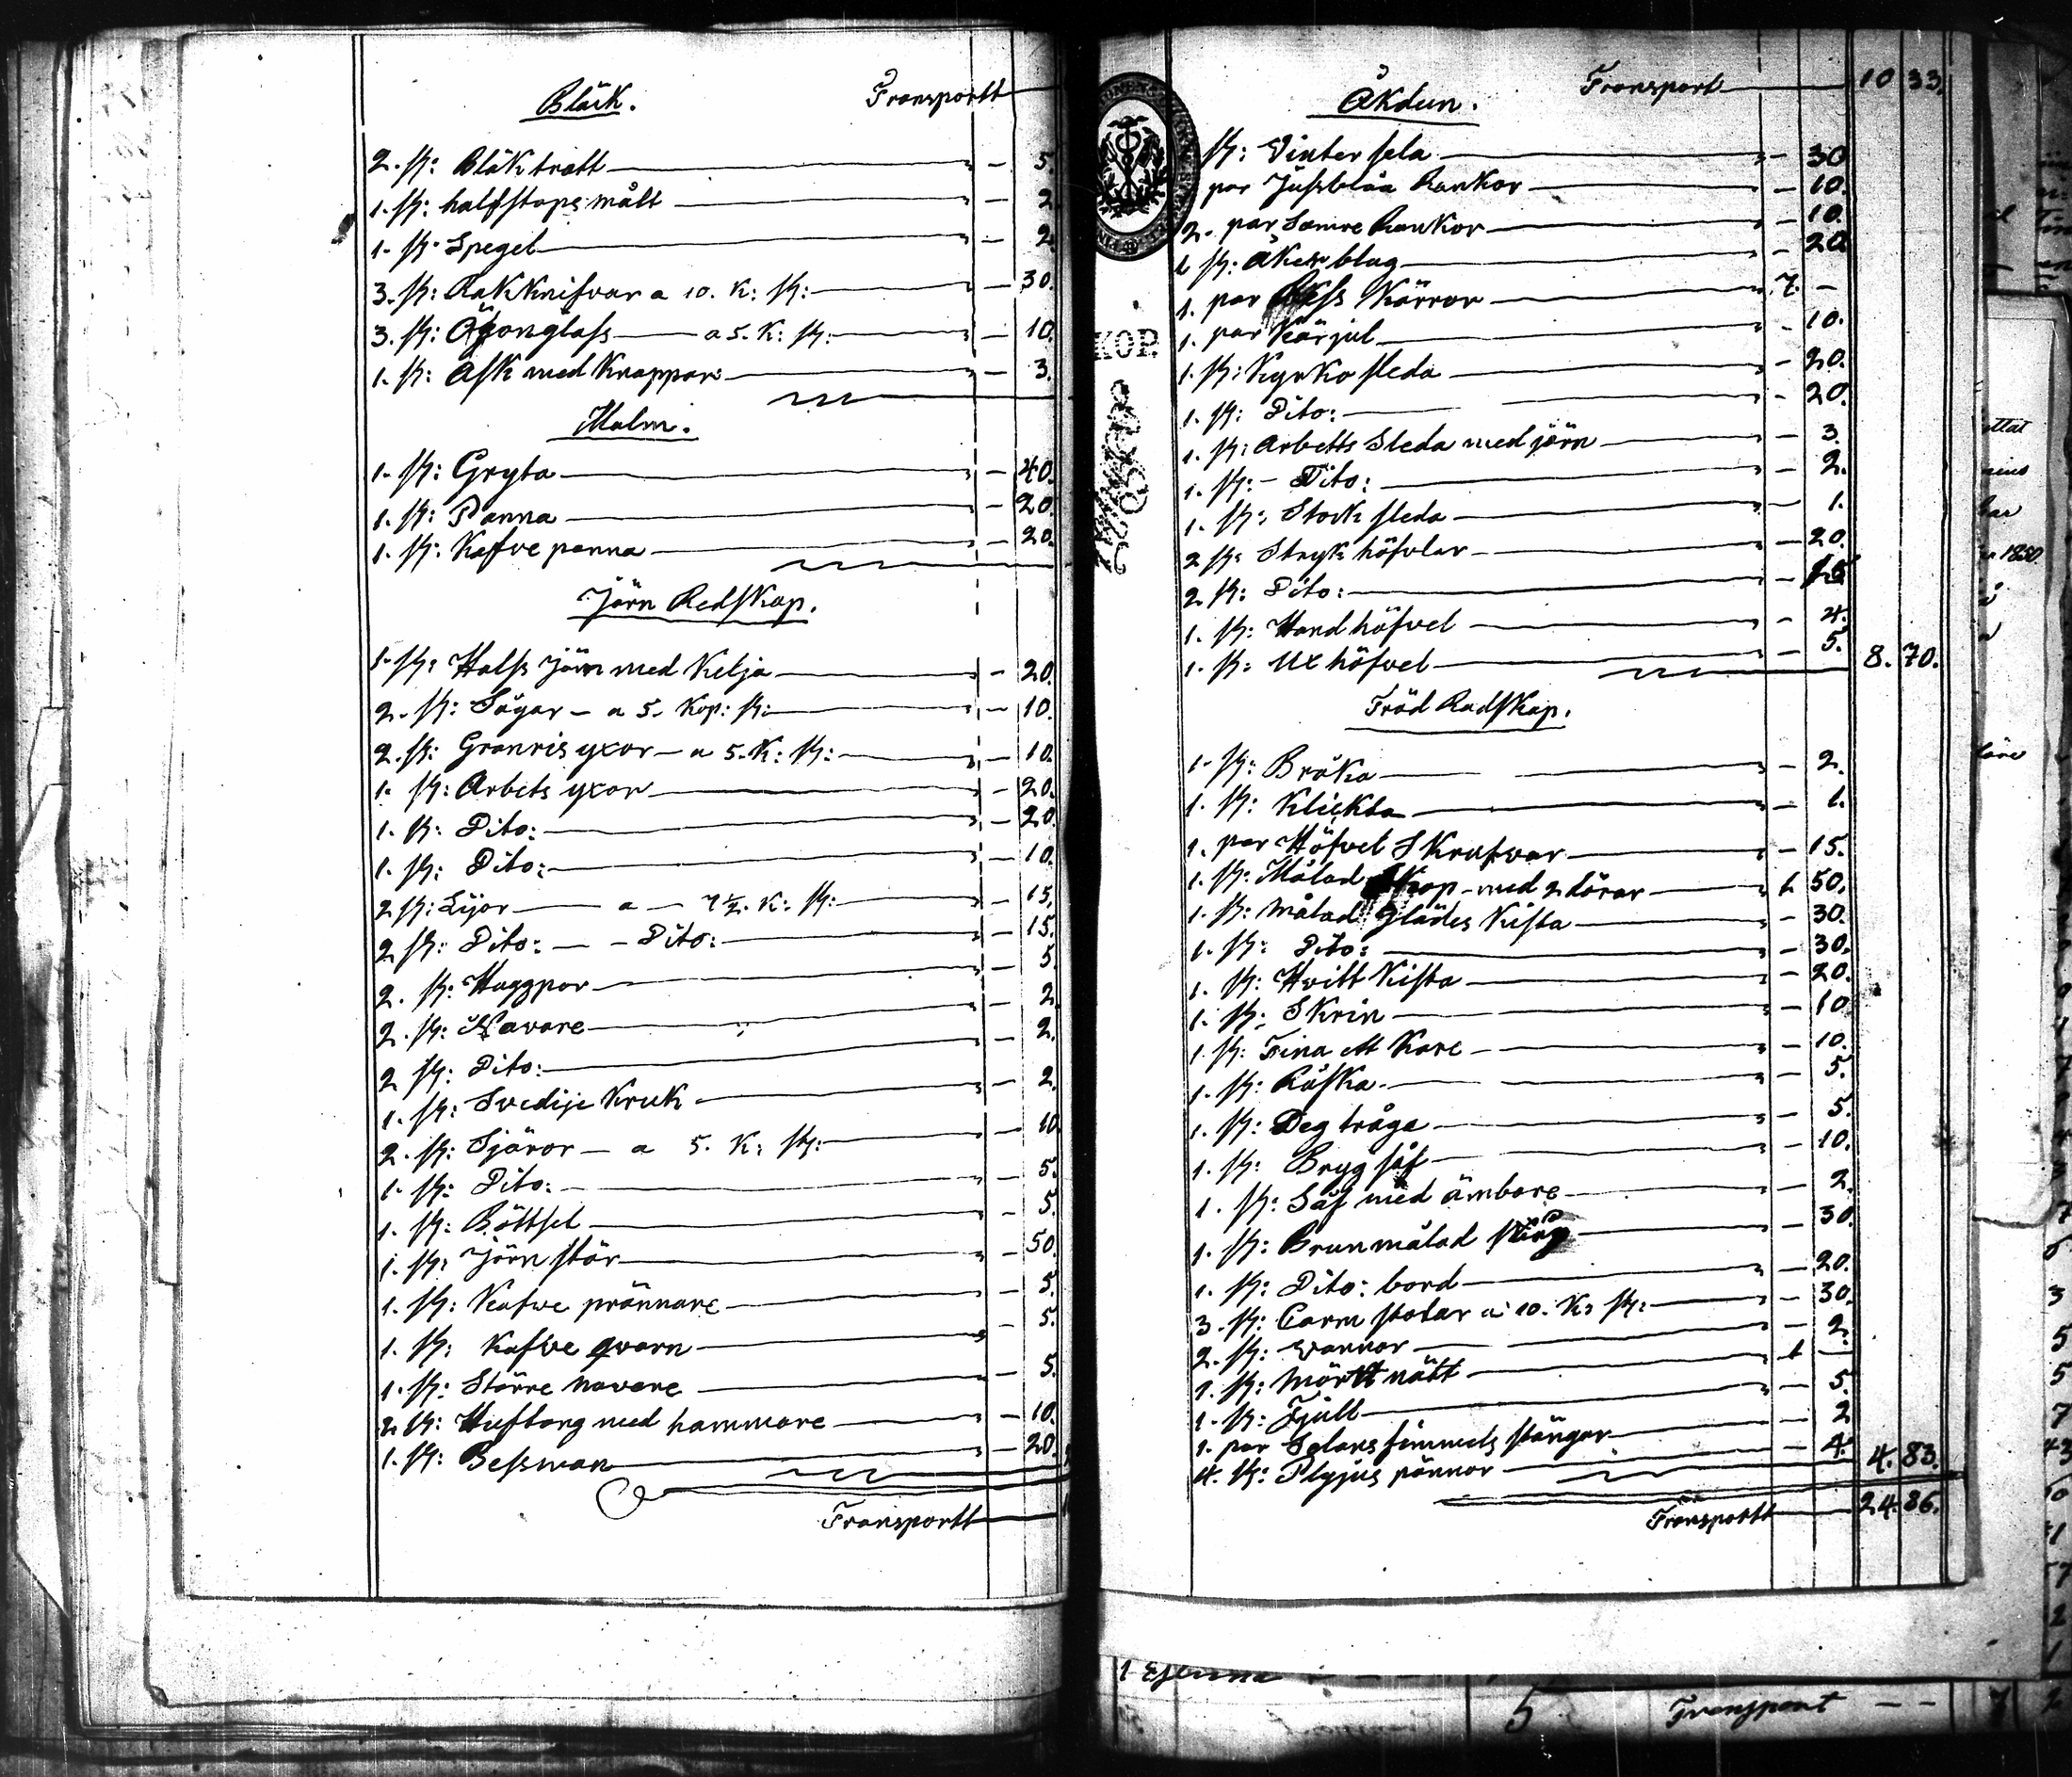 Bläck. Transportt
2. st: Bläk tratt — 5.
1. st: halfstops mått — 2.
1. st: Spegel — 2.
3. st: Rakknifvar a 10. K: st: — 30.
3. st: Ögonglass — a 5. K: st: — 10.
1. st: Ask med Knappar — 3.
Malm.
1. st: Gryta — 40.
1. st: Panna — 20.
1. st: Kaffve panna — 20.
Järn Redskap.
1. st: Halfs Järn med Kelja — 20.
2. st: Sågar — a 5. Kop: st: — 10.
2. st: Granris yxor — a 5. K: st: — 10.
1. st: Arbets yxor — 20.
1. st: Dito: — 20.
1. st: Dito: — 10.
2 st: Lijor — a — 7½. K: st: — 15.
2 st: Dito: — Dito: — 15.
2. st: Huggpor — 5.
2. st: Navare — 2.
2 st: Dito: — 2.
1. st: Svedije Kruk — 2.
2. st: Sjäror — a 5. K: st: — 10.
1. st: Dito: — 5.
1. st: Böttsel — 5.
1. st: Järn stör — 50.
1. st: Kafwe prännare — 5.
1. st: Kafwe qvarn — 5.
1. st: Större navare — 5.
2 st: Huftong med hammare — 10.
1. st: Bessman — 20.
Transportt
Åkdun. Transport 10 33.
st: Vinter sela — 30
par Jussblåa Rankor — 10.
2. par Sämre Rankor — 10.
1 st: Åker blag — 20
1. par Kärror 7. —
1. par Kärjul — 10.
1. st: Kyrko sleda — 20.
1. st: Dito: — 20.
1. st: Arbetts Sleda med järn — 3.
1. st: — Dito: — 2.
1. st: Stock sleda — 1.
2 st: Stryk höfvlar — 20.
2 st: Dito: —
1. st: Hand höfvel — 4.
1. st: Ut höfvel — 5. 8. 70.
Träd Radskap.
1. st: Bråka — 2.
1. st: Klickta — 1.
1. par Höfvel Skrufvar — 15.
1. st: Målad Skop med 2 dörar 1 50.
1. st: Målad Glädes Kista — 30.
1. st: Dito: — 30.
1. st: Hvitt Kista — 20.
1. st: Skrin — 10
1. st: Tina ett Kare — 10.
1. st: Råska — 5.
1. st: Deg tråga — 5.
1. st: Bryg såf — 10.
1. st: Såf med ämbare — 2.
1. st: Brun målad — 30.
1. st: Dito: bord — 20.
3. st: Carm stolar a 10. K: st: — 30.
2. st: vannor — 2.
1. st: Mörtt nätt 1 —
1. st: Tjäll — 5.
1. par Solans simmels stänger — 2
4. st: Plyjus pännor — 4. 4. 83.
Transportt 24. 86.
KOP.
5 Transport — —
1850.